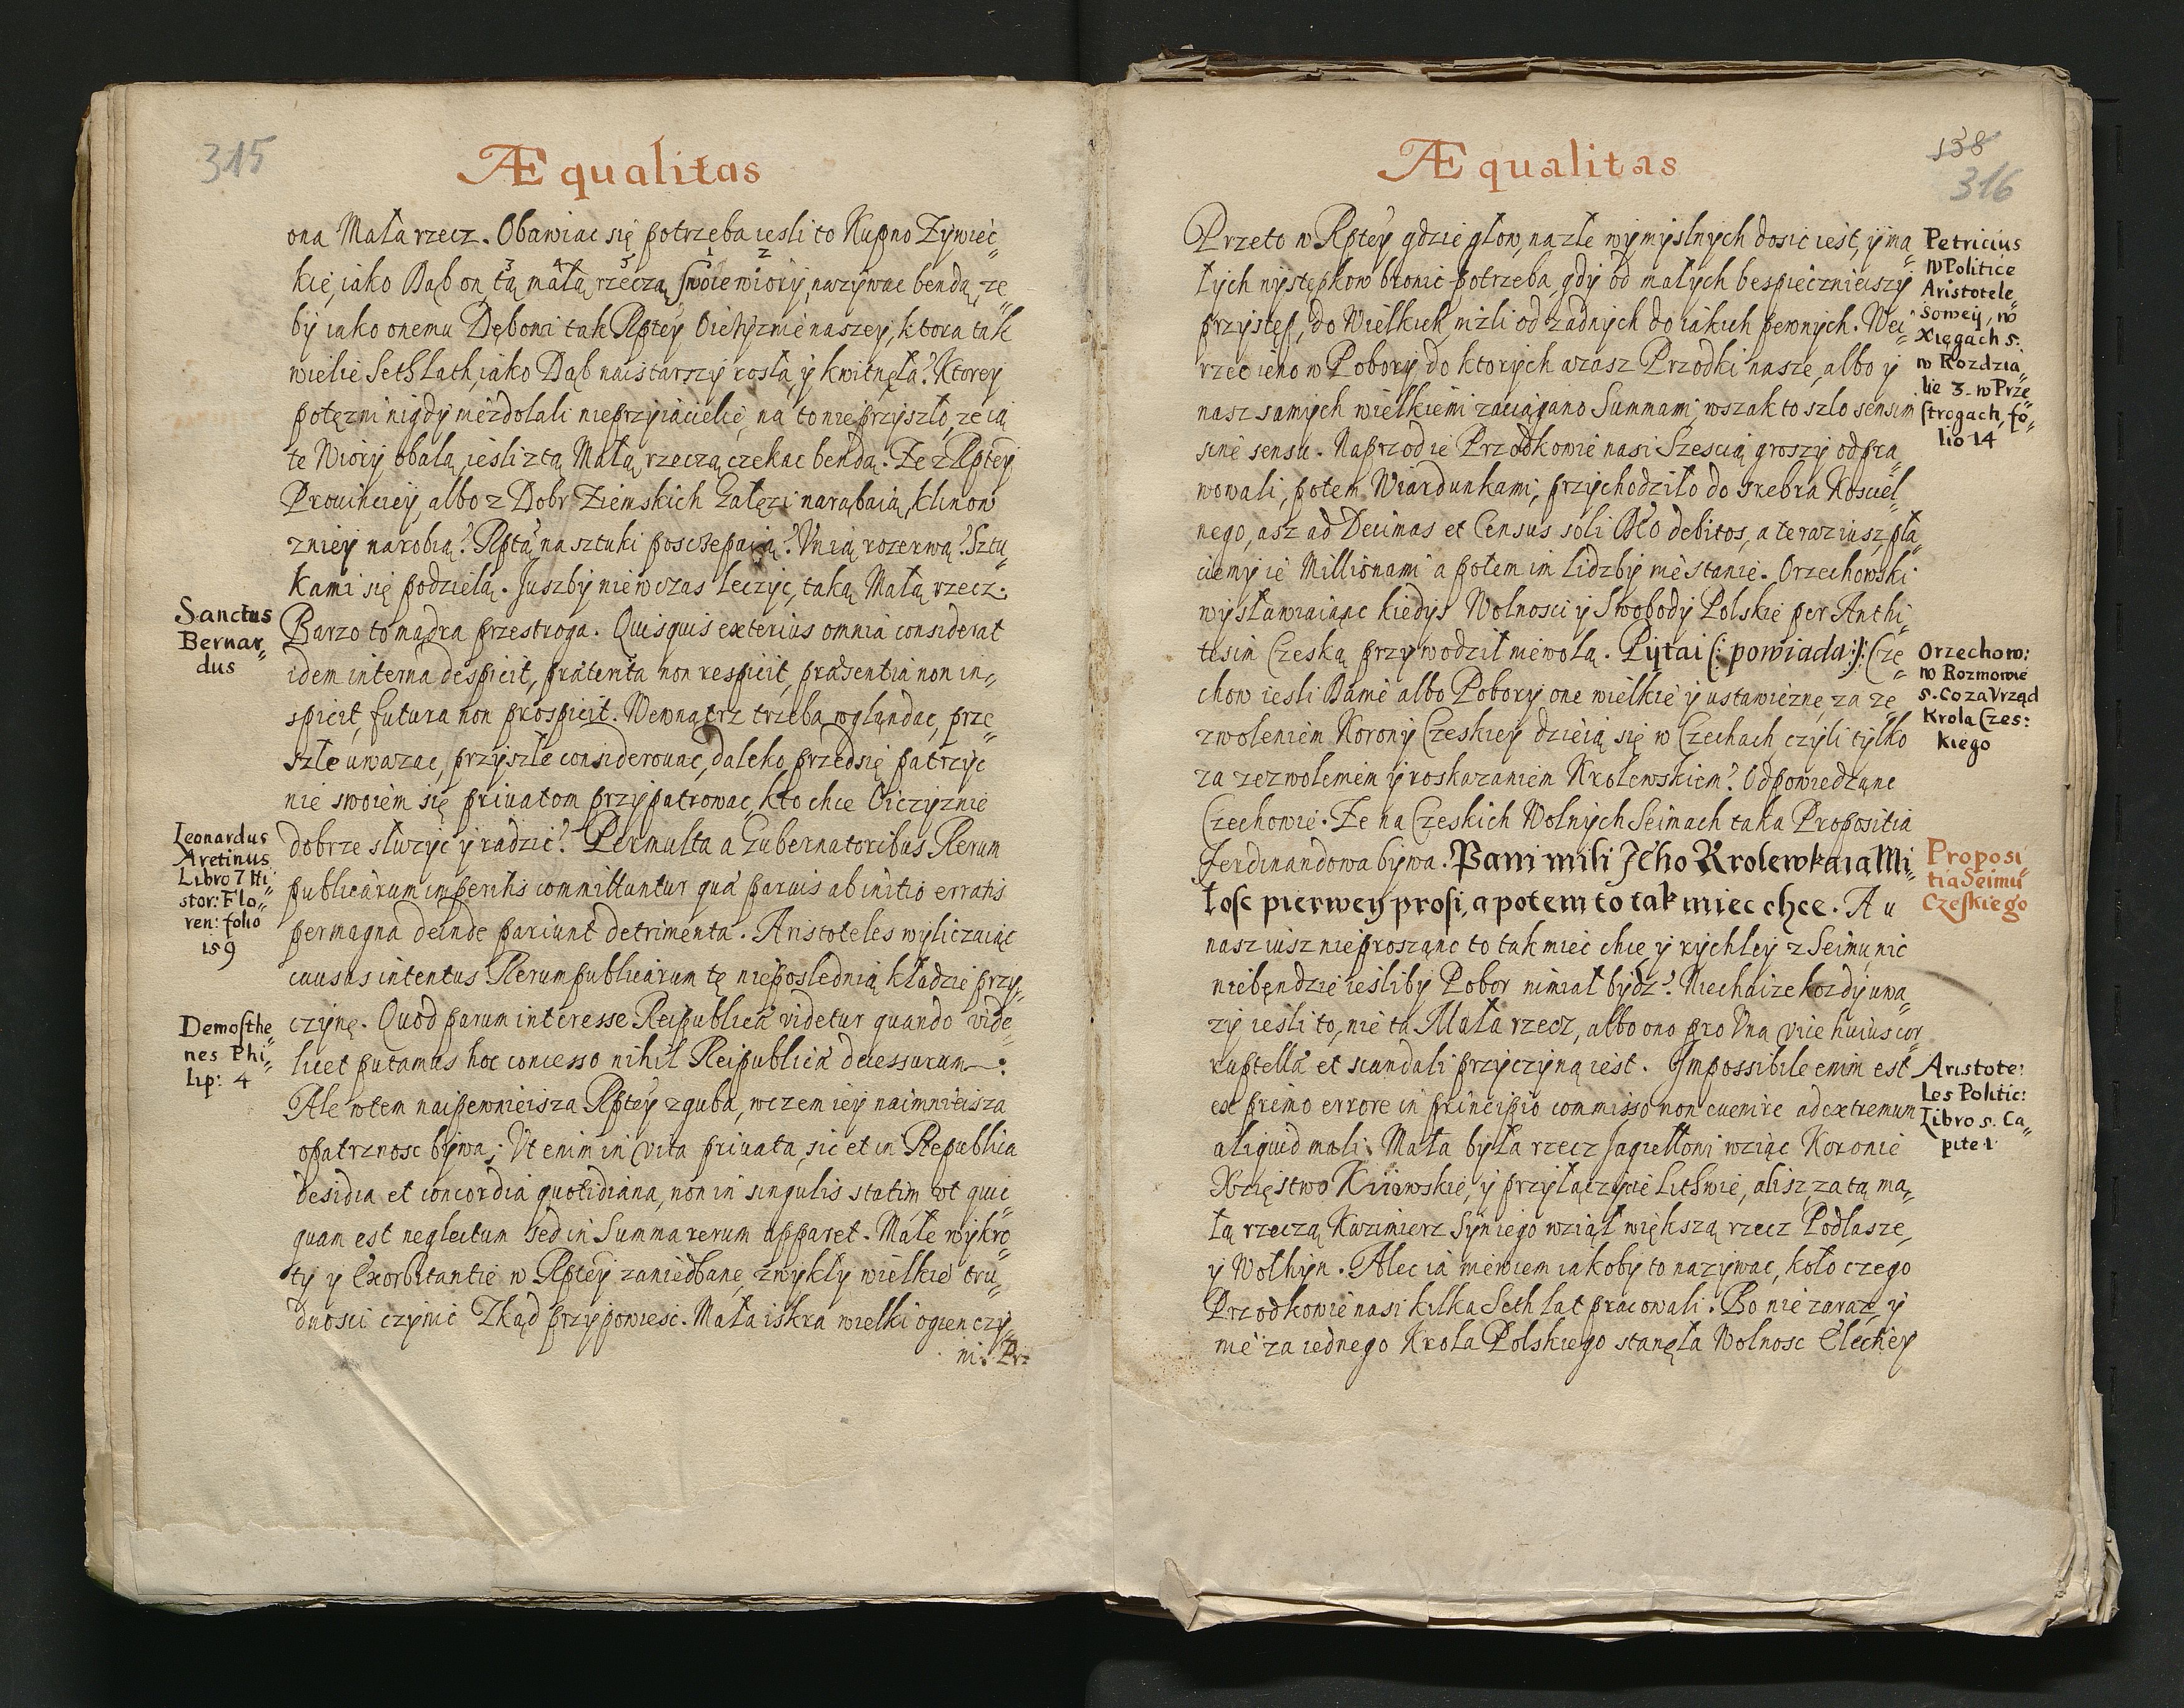 315
Æqualitas
ona Mała rzecz. Obawiac się potrzeba iesli to Kupno Zywiec„
3 4 5 1 2
kie, iako Dąb on, tą małą rzeczą swoie wiory, nazywac bendą, ze„
by iako onemu Dębowi tak Rptey Oietzyznie naszey, ktora tak
wielie Seth Lath, iako Dąb naistarszy rosła, y kwitnęła? Ktorey
potęzni nigdy niezdolali nieprzyiacielie, na to nie przyszło, ze ią
te Wiory obalą, iesli z tą Małą rzeczą czekac bendą. Ze z Rptey
Prouinciey, albo z Dobr Ziemskich Gałęzi narąbaią, klinow
zniey narobią? Rptą na sztuki posczepaią? Vnią rozerwą? Sztu„
kami się podzielą. Juszby niewczas leczyc, taką Małą rzecz.
Sanctus
Bernar„
dus
Barzo to mądra przestroga. Quisquis exterius omnia considerat
idem interna despicit, præterita non respicit, præsentia non in„
spicit, futura non prospicit. Wewnątrz trzeba wglądac, prze„
szłe uwazac, przyszłe considerouac, daleko przedsię patrzyc
nie swoiem się priuatom przypatrowac, kto chce Oiczyznie
Leonardus
Aretinus
Libro 7 Hi
stor: Flo„
ren: folio
159
dobrze słuzyc y radzic? Permulta a Gubernatoribus Rerum
publicarum imperitis committuntur quæ paruis ab initio erratis
permagna deinde pariunt detrimenta. Aristoteles wyliczaiąc
causas intentus Rerumpublicarum tę nieposlednią kładzie przy„
Demosthe„
nes Phi„
lip: 4
czynę. Quod parum interesse Reipublicæ videtur quando vide„
licet putamus hoc concesso nihil Reipublicæ decessurum:
Ale wtem naipewnieisza Rptey zguba, wczem iey naimnieisza
opatrznosc bywa; Vt enim in vita priuata, sic et in Republica
desidia et concordia quotidiana, non in singulis statim vt quic„
quam est neglectum sed in Summa rerum apparet. Małe wykro„
ty y Exorbitantie w Rptey zaniedbane, zwykły wielkie tru„
dnosci czynic Zkąd przypowiesc. Mała iskra wielki ogien czy„
ni. Prz
138
316
Æqualitas
Przeto w Rptey gdzie głow, na złe wymyslnych dosic iest, y ma„
łych występkow bronic potrzeba, gdy od małych bespiecznieiszy
przystęp, do Wielkich, nizli od zadnych do iakich pewnych. Wei„
rzec ieno w Pobory, do ktorych azasz Przodki nasze, albo y
nasz samych wielkiemi zaciągano Summami, wszak to szlo sensim
sine sensu. Naprzod ie Przodkowie nasi Szescią groszy odpra„
wowali, potem Wiardunkami, przychodziło do srebra Kosciel„
nego, asz ad Decimas et Census soli Deo debitos, a teraz iusz pła„
ciemy ie Millionami a potem im lidzby niestanie. Orzechowski
wysławiaiąc kiedys Wolnosci y Swobody Polskie per Anthi„
tesin Czeską przywodził niewolą. Pytai (: powiada:): Cze„
chow iesli Danie albo Pobory one wielkie y ustawiczne, za ze„
zwoleniem Korony Czeskiey dzieią się w Czechach czyli tylko
za zezwoleniem y roskazaniem Krolewskiem? Odpowiedząnc
Czechowie. Ze na Czeskich Wolnych Seimach taka Propositia
Ferdinandowa bywa. Pani mili Jeho Krolewkaia Mi„
łosc pierwey prosi, a potem to tak miec chce. A u
nasz iusz nieprosząnc to tak miec chce, y rychley z Seimu, nic
niebendzie iesliby Pobor nimiał bydz? Niechaize kozdy uwa„
zy iesli to, nie ta Mała rzecz, albo ono pro Vna vice huius cor„
ruptellæ et scandali przyczyną iest. Impossibile enim est
ex primo errore in principio commisso non euenire ad extremum
aliquid mali. Mała była rzecz Jagiełłowi wziąc Koronie
Xzięstwo Kiiowskie, y przyłączycie Lithwie, alisz, za tą ma„
łą rzeczą Kazimierz Syn iego wziął większą rzecz Podlasze,
y Wołhyn. Alec ia niewiem iakoby to nazywac, koło czego
Przodkowie nasi kilka Seth lat pracowali. Bo nie zaraz, y
nie za iednego Krola Polskiego stanęła Wolnosc Electiey
Petricius
w Politice
Aristotele„
sowey, w
Xięgach 5.
w Rozdzia„
lie 3. w Prze„
strogach, fo„
lio 14
Orzechow:
w Rozmowie
5. Co za Vrząd
Krola Czes:
kiego
Proposi„
tia Seimu
Czeskiego
Aristote:
les Politic:
Libro 5. Ca„
pite 1